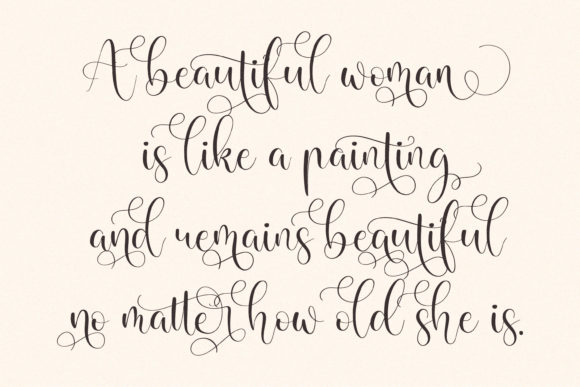 A beautiful woman
is like a painting
and remains beautiful
no matter how old she is.